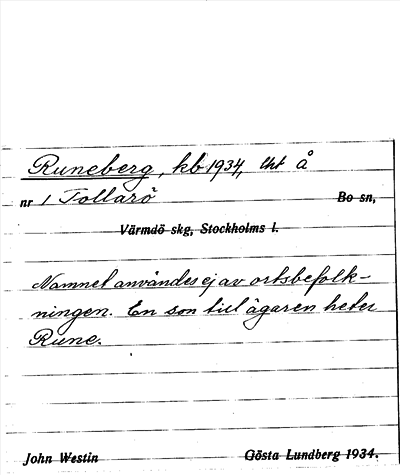 Runeberg, kb 1934, lht å
nr 1 Tollarö Bo sn,
Värmdö skg, Stockholms l.
Namnet användes ej av ortsbefolk-
ningen. En son till ägaren heter
Rune.
John Westin Gösta Lundberg 1934.